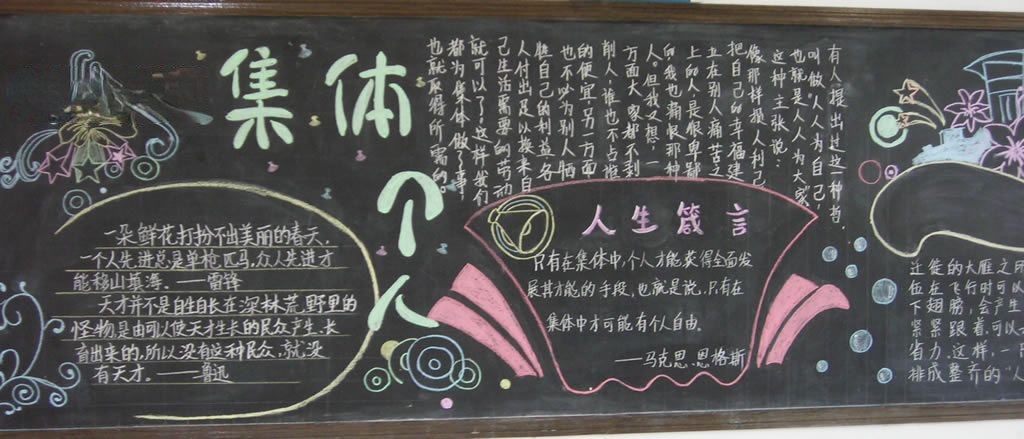 集体
个人
一朵鲜花打扮不出美丽的春天,
一个人先进总是单枪匹马,众人先进才
能移山填海。——雷锋
天才并不是自生自长在深林荒野里的
怪物,是由可以使天才生长的民众产生、长
育出来的,所以没有这种民众,就没
有天才。——鲁迅
有人提出过这一种哲,
叫做“人人为自己,
也就是人人为大家”
这种主张说:
像那样损人利己
把自己的幸福建
立在别人痛苦之
上的人是很卑鄙
的我也痛恨那种
人。但我又想:一
方面大家都不剥
削人,谁也不占谁
的便宜,另一方面
也不必为别人牺
牲自己的利益,各
人付出足以换来自
己生活需要的劳动
就可以了。这样我们
都为集体做了事
也就取得所需的。
人生箴言
只有在集体中,个人才能获得全面发
展其才能的手段,也就是说,只有在
集体中才可能有个人自由。
——马克思.恩格斯
迁徙的大雁之所
位在飞行时可以
下翅膀,会产生
紧紧跟着,可以
省力。这样,一
排成整齐的“人